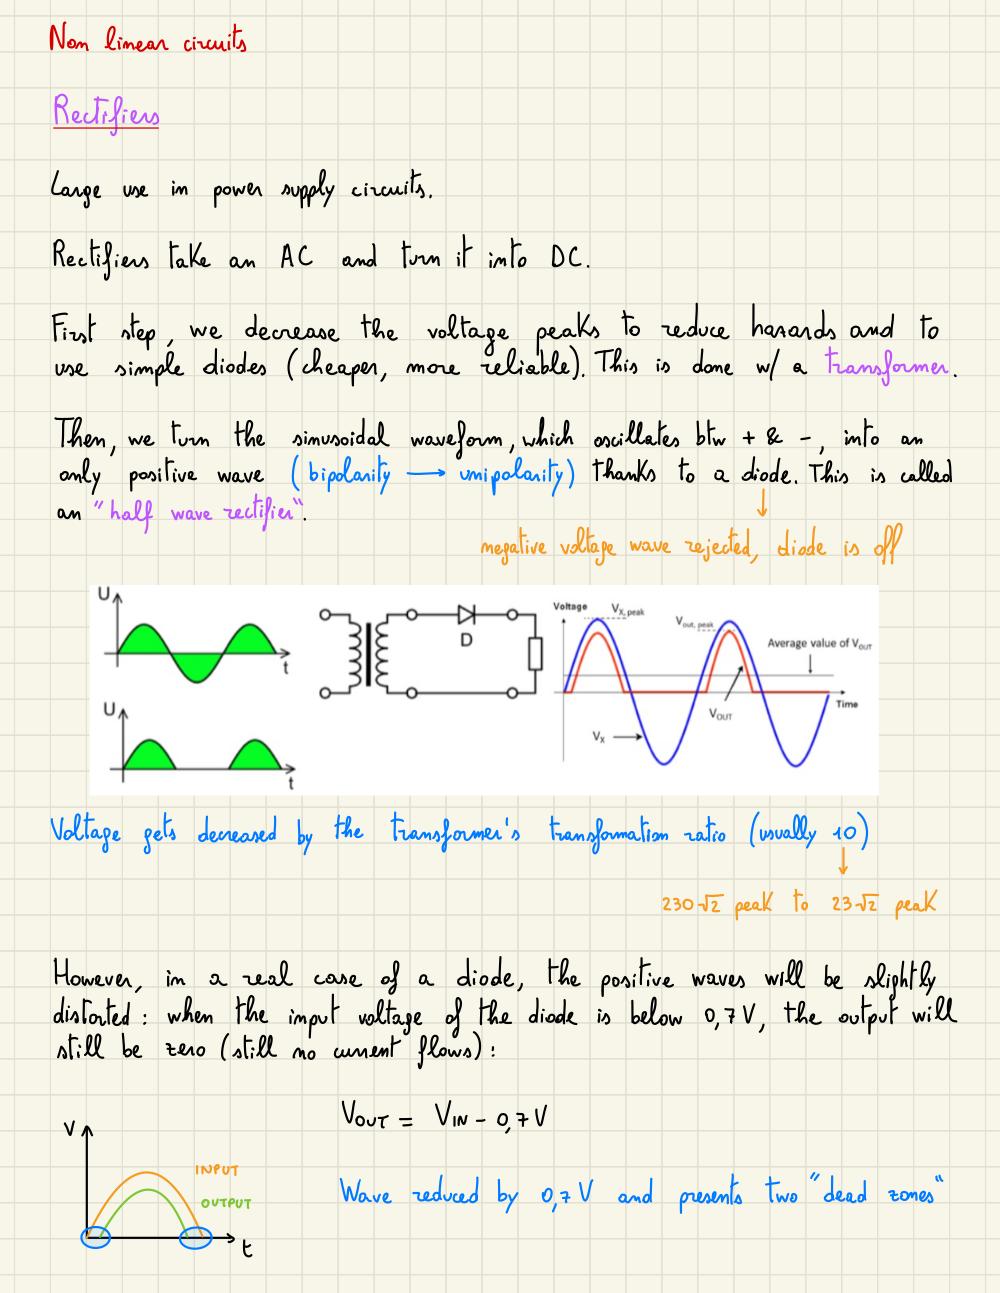 Non linear circuits
Rectifiers
Large use in power supply circuits.
Rectifiers take an AC and turn it into DC.
First step, we decrease the voltage peaks to reduce hasards and to
use simple diodes (cheaper, more reliable). This is done w/ a transformer.
Then, we turn the sinusoidal waveform, which oscillates btw + & -, into an
only positive wave (bipolarity → unipolarity) thanks to a diode. This is called
an "half wave rectifier".
↓
negative voltage wave rejected, diode is off
U
t
U
t
D
Voltage
Vx, peak
Vout, peak
Average value of VOUT
VOUT
Time
Vx
Voltage gets decreased by the transformer's transformation ratio (usually 10)
↓
230√2 peak to 23√2 peak
However, in a real case of a diode, the positive waves will be slightly
distorted : when the input voltage of the diode is below 0,7 V, the output will
still be zero (still no current flows) :
VOUT = VIN - 0,7 V
V
INPUT
OUTPUT
t
Wave reduced by 0,7 V and presents two "dead zones"